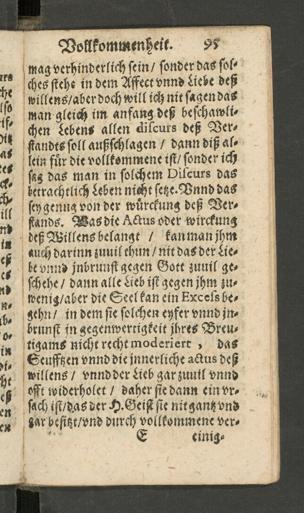 Vollkommenheit. 95
mag verhinderlich sein / sonder das sol-
ches stehe in dem Affect vnnd Liebe deß
willens / aber doch will ich nit sagen das
man gleich im anfang deß beschawli-
chen Lebens allen discurs deß Ver-
standts soll außschlagen / dann diß al-
lein für die vollkommene ist / sonder ich
sag das man in solchem Discurs das
betrachtlich Leben nicht setze. Vnnd das
sey genug von der würckung deß Ver-
stands. Was die Actus oder wirckung
deß Willens belangt / kan man jhm
auch darinn zuuil thun / nit das der Lie-
be vnnd jnbrunst gegen Gott zuuil ge-
schehe / dann alle Lieb ist gegen jhm zu-
wenig / aber die Seel kan ein Excels be-
gehn / in dem sie solchen eyfer vnnd jn-
brunst in gegenwertigkeit jhres Breu-
tigams nicht recht moderiert , das
Seufftzen vnnd die jnnerliche actus deß
willens / vnnd der Lieb gar zuuil vnnd
offt widerholet / daher sie dann ein vr-
sach ist / das der H. Geist sie nit gantz vnd
gar besitzt / vnd durch vollkommene ver-
E einig-